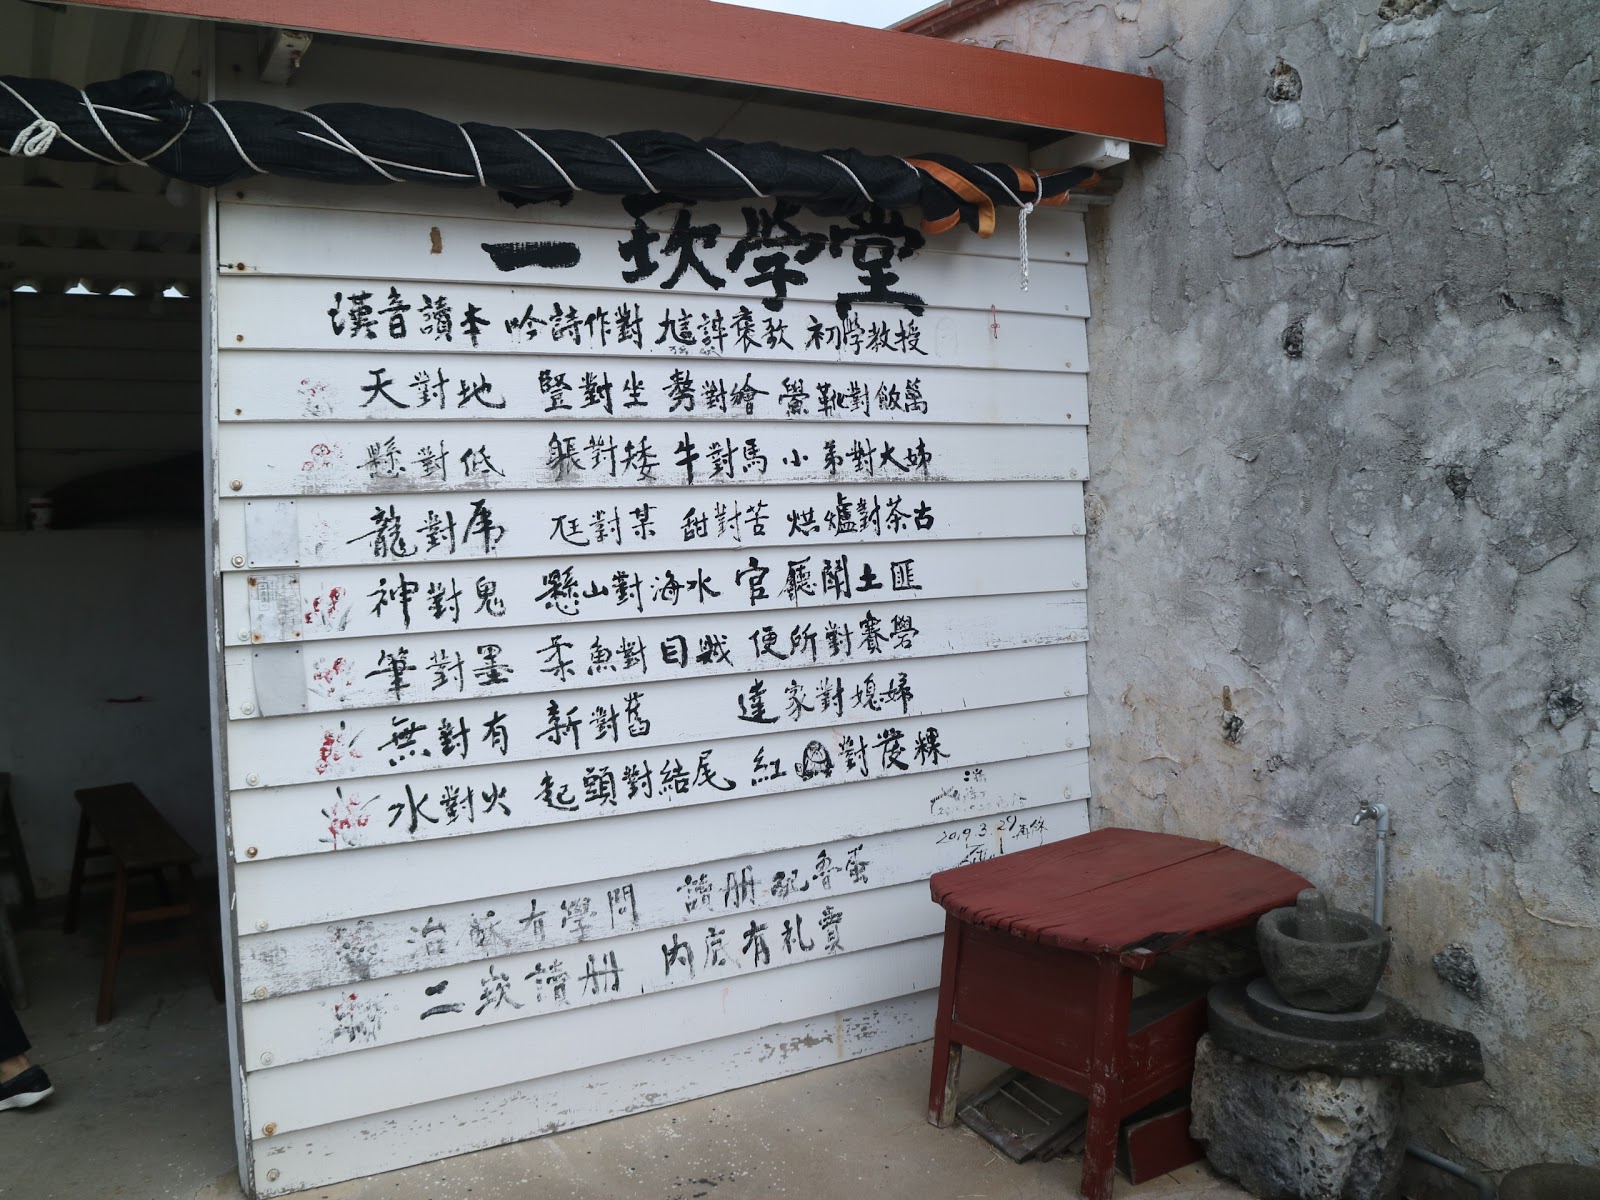 一崁學堂
漢音讀本 吟詩作對 褒歌 初學教授
天對地 豎對坐 對繪 對飯萬
懸對低 躼對矮 牛對馬 小弟對大姊
龍對虎 尫對某 甜對苦 烘爐對茶古
神對鬼 懸山對海水 官廳鬪土匪
筆對墨 柔魚對目賊 便所對賽礐
無對有 新對舊 達家對媳婦
水對火 起頭對結尾 紅龜對發粿
2019.3.29
治 有學問 讀册配魯蛋
二崁讀册 內底有礼賣